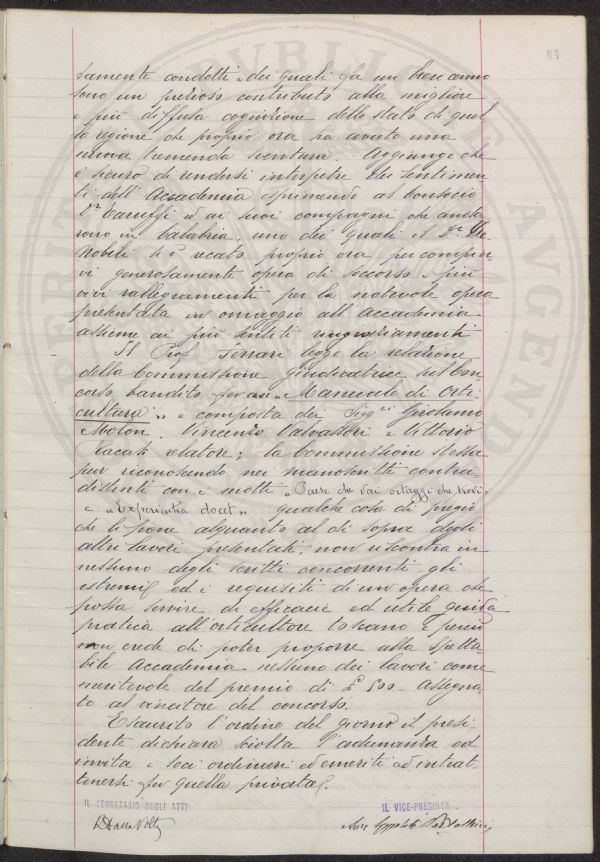 84
samente condotti e dei quali fa un breve cenno
sono un prezioso contributo alla migliore
e più diffusa cognizione dello stato di quel
la regione che proprio ora ha avuto una
nuova tremenda sventura. Aggiunge che
è sicuro di rendersi interpetre dei sentimen
ti dell'Accademia esprimendo al consocio
Dr Caruffi ed ai suoi compagni che anda
rono in Calabria, uno dei quali il Dr De
Nobili si è recato proprio ora per compier
vi generosamente opera di soccorso i più
vivi rallegramenti per la notevole opera
presentata in omaggio all'Accademia
assieme ai più sentiti ringraziamenti
Il Prof. Ferrari legge la relazione
della Commissione giudicatrice sul con
corso bandito per un "Manuale di Orti
cultura" e composta dei Sigri Girolamo
Molon, Vincenzo Valvassori e Vittorio
Racah relatore; la Commissione stessa
pur riconoscendo nei manoscritti contra
distinti con i motti "Paese che vai ortaggi che trovi"
e "Experientia docet" qualche cosa di pregio
che li pone alquanto al di sopra degli
altri lavori presentati, non riscontra in
nessuno degli scritti concorrenti gli
estremi ed i requisiti di un'opera che
possa servire di efficace ed utile guida
pratica all'orticultore toscano e perciò
non crede di poter proporre alla spetta
bile Accademia nessuno dei lavori come
meritevole del premio di £ 500 assegna
to al vincitore del concorso.
Esaurito l'ordine del giorno il presi
dente dichiara sciolta l'adunanza ed
invita i soci ordinari ed emeriti ad intrat
tenersi per quella privata.
IL SEGRETARIO DEGLI ATTI
IL VICE-PRESIDEN